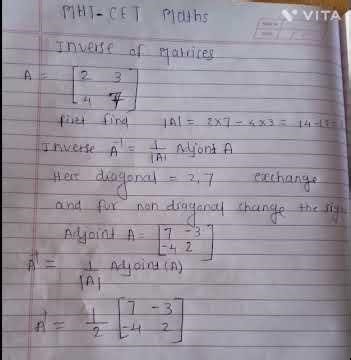 MHT-CET Maths
VITA
Inverse of Matrices
A = [2 3
4 7]
first find |A| = 2x7 - 4x3 = 14-12=
Inverse A⁻¹ = 1/|A| Adjont A
Here diagonal = 2,7 exchange
and for non diagonal change the sign
Adjoint A = [7 -3
-4 2]
A⁻¹ = 1/|A| Adjoint (A)
A⁻¹ = 1/2 [7 -3
-4 2]